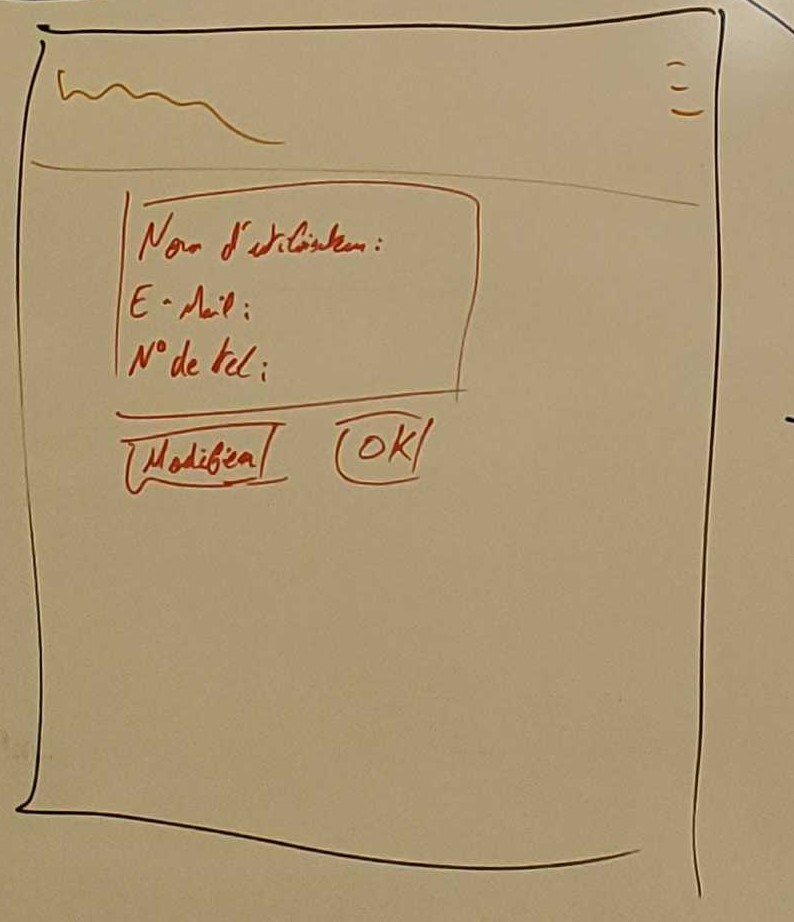 Nom d'utilisateur :
E-Mail :
N° de tel :
Modifier
OK